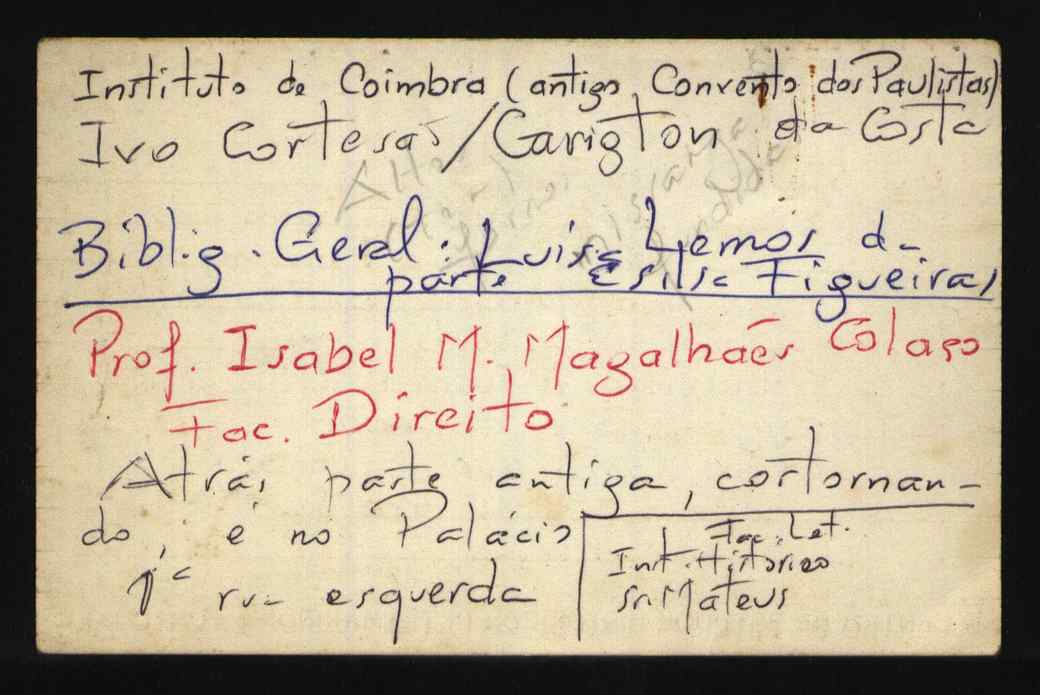 Instituto de Coimbra (antigo Convento dos Paulistas)
Ivo Cortesão/Carigton da Costa
Bibliog. Geral: Luisa Lemos da
parte e silva Figueiras
Prof. Isabel M. Magalhães Colaço
Fac. Direito
Atrás parte antiga, cortornan-
do, é no Palácio
1ª rua esquerda
Fac. Let.
Inst. Histórico
Sr. Mateus